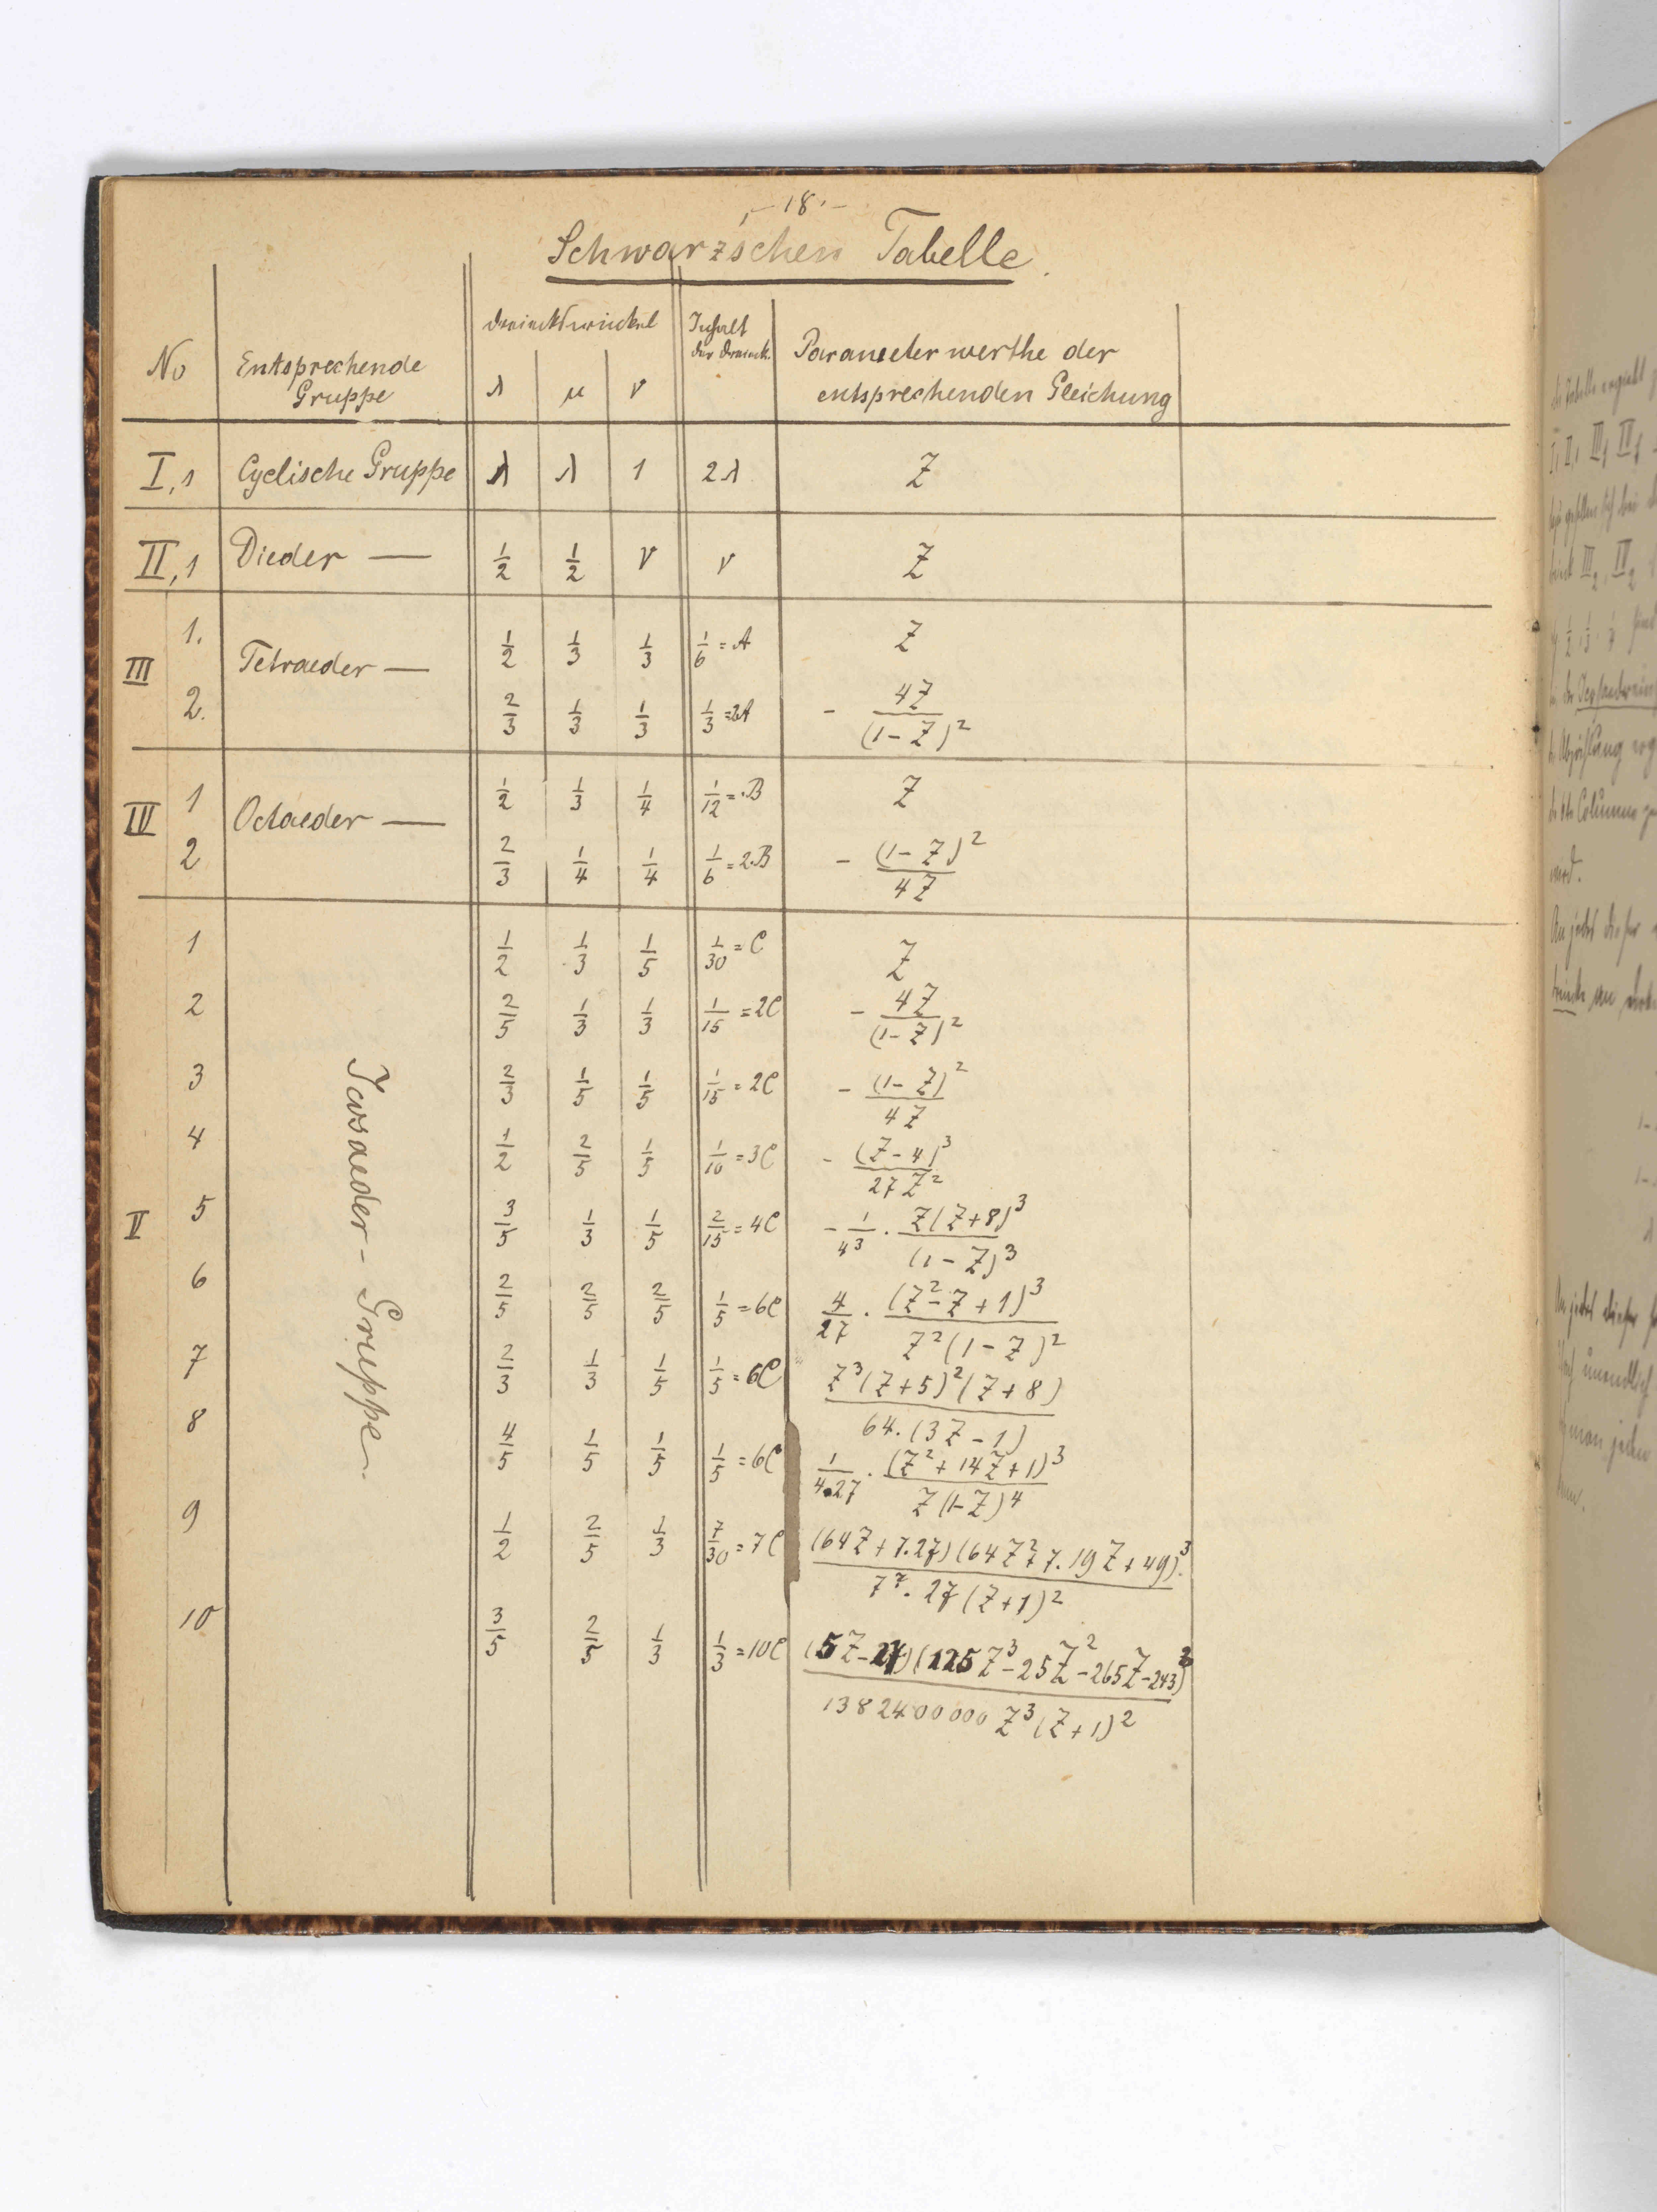 18.
Schwarz'schen Tabelle.
No | Entsprechende Gruppe | Dreieckswinkel λ μ ν | Inhalt der Dreieck. | Parameter werthe der entsprechenden Gleichung
I,1 | Cyclische Gruppe | λ | λ | 1 | 2λ | Z
II,1 | Dieder — | 1/2 | 1/2 | ν | ν | Z
III 1. | Tetraeder — | 1/2 | 1/3 | 1/3 | 1/6 = A | Z
2. | 2/3 | 1/3 | 1/3 | 1/3 = 2A | - 4Z/(1-Z)^2
IV 1 | Octaeder — | 1/2 | 1/3 | 1/4 | 1/12 = B | Z
2 | 2/3 | 1/4 | 1/4 | 1/6 = 2.B | - (1-Z)^2/4Z
V | Icosaeder - Gruppe.
1 | 1/2 | 1/3 | 1/5 | 1/30 = C | Z
2 | 2/5 | 1/3 | 1/3 | 1/15 = 2C | - 4Z/(1-Z)^2
3 | 2/3 | 1/5 | 1/5 | 1/15 = 2C | - (1-Z)^2/4Z
4 | 1/2 | 2/5 | 1/5 | 1/10 = 3C | - (Z-4)^3/27Z^2
5 | 3/5 | 1/3 | 1/5 | 2/15 = 4C | - 1/4^3 . Z(Z+8)^3/(1-Z)^3
6 | 2/5 | 2/5 | 2/5 | 1/5 = 6C | 4/27 . (Z^2-Z+1)^3/Z^2(1-Z)^2
7 | 2/3 | 1/3 | 1/5 | 1/5 = 6C | Z^3(Z+5)^2(Z+8)/64.(3Z-1)
8 | 4/5 | 1/5 | 1/5 | 1/5 = 6C | 1/4.27 . (Z^2+14Z+1)^3/Z(1-Z)^4
9 | 1/2 | 2/5 | 1/3 | 7/30 = 7C | (64Z+7.27)(64Z^2+7.19Z+49)^3/7^7.27(Z+1)^2
10 | 3/5 | 2/5 | 1/3 | 1/3 = 10C | (5Z-27)(125Z^3-25Z^2-265Z-243)^3/1382400000 Z^3(Z+1)^2